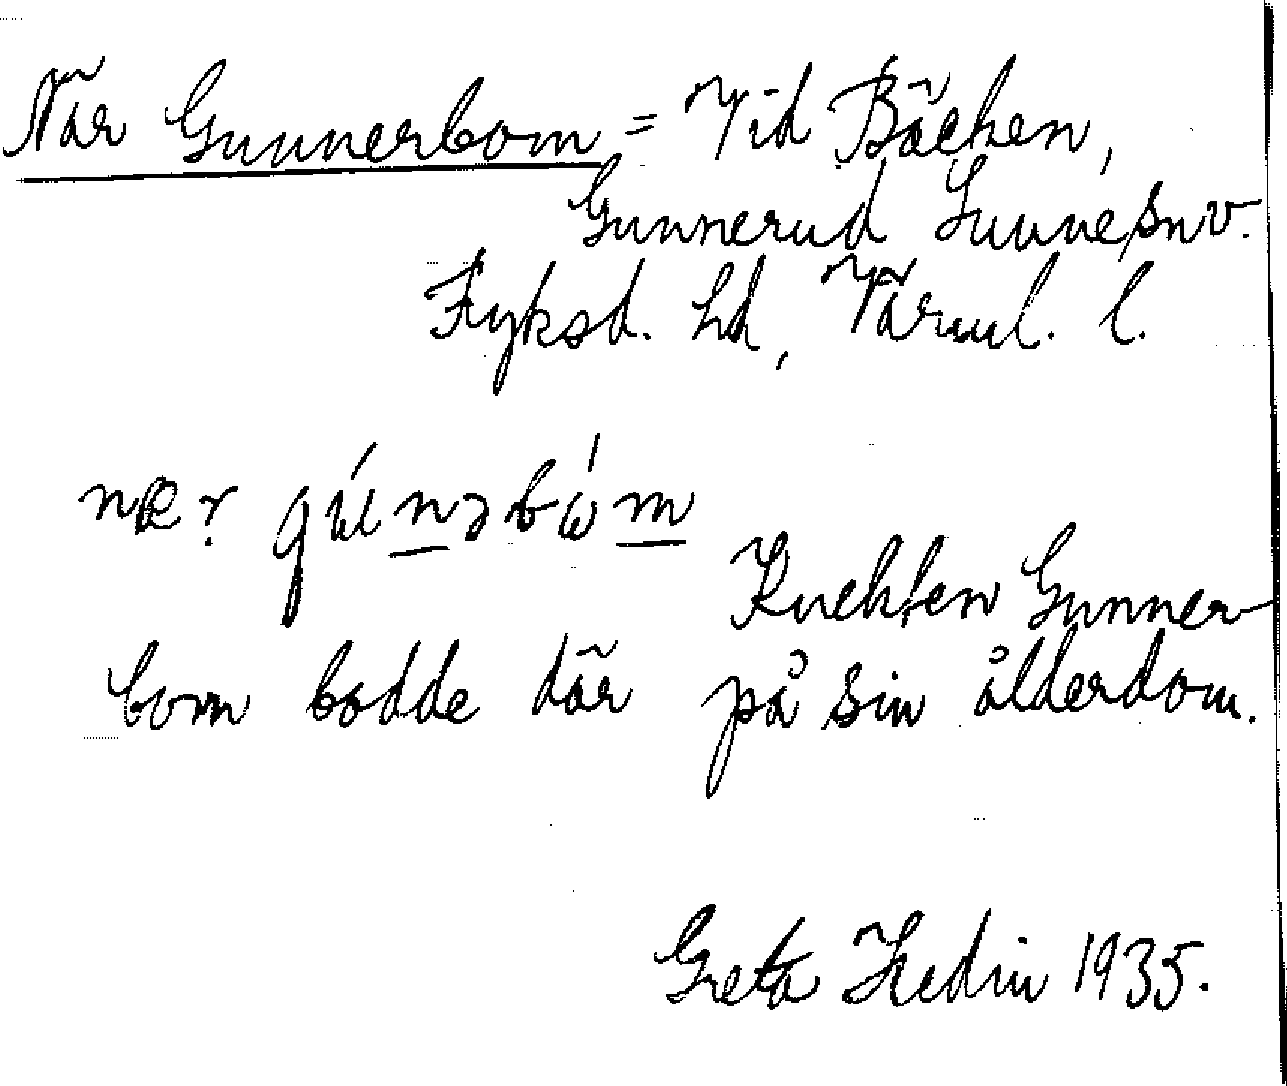 När Gunnerbom = Vid Bäcken,
Gunnerud Sunne snv.
Fryksd. hd, Värml. l.
Knekten Gunner-
bom bodde där på sin ålderdom.
Greta Hedin 1935.